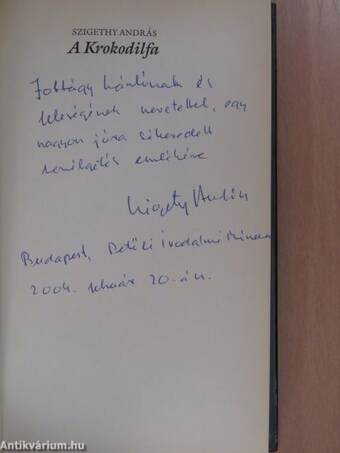 SZIGETHY ANDRÁS
A Krokodilfa
és
feleségének szeretettel, egy
nagyon jóra sikeredett
emlékére
Szigethy András
Budapest, Petőfi Irodalmi Múzeum
2004. február 20-án.
Antikvárium.hu